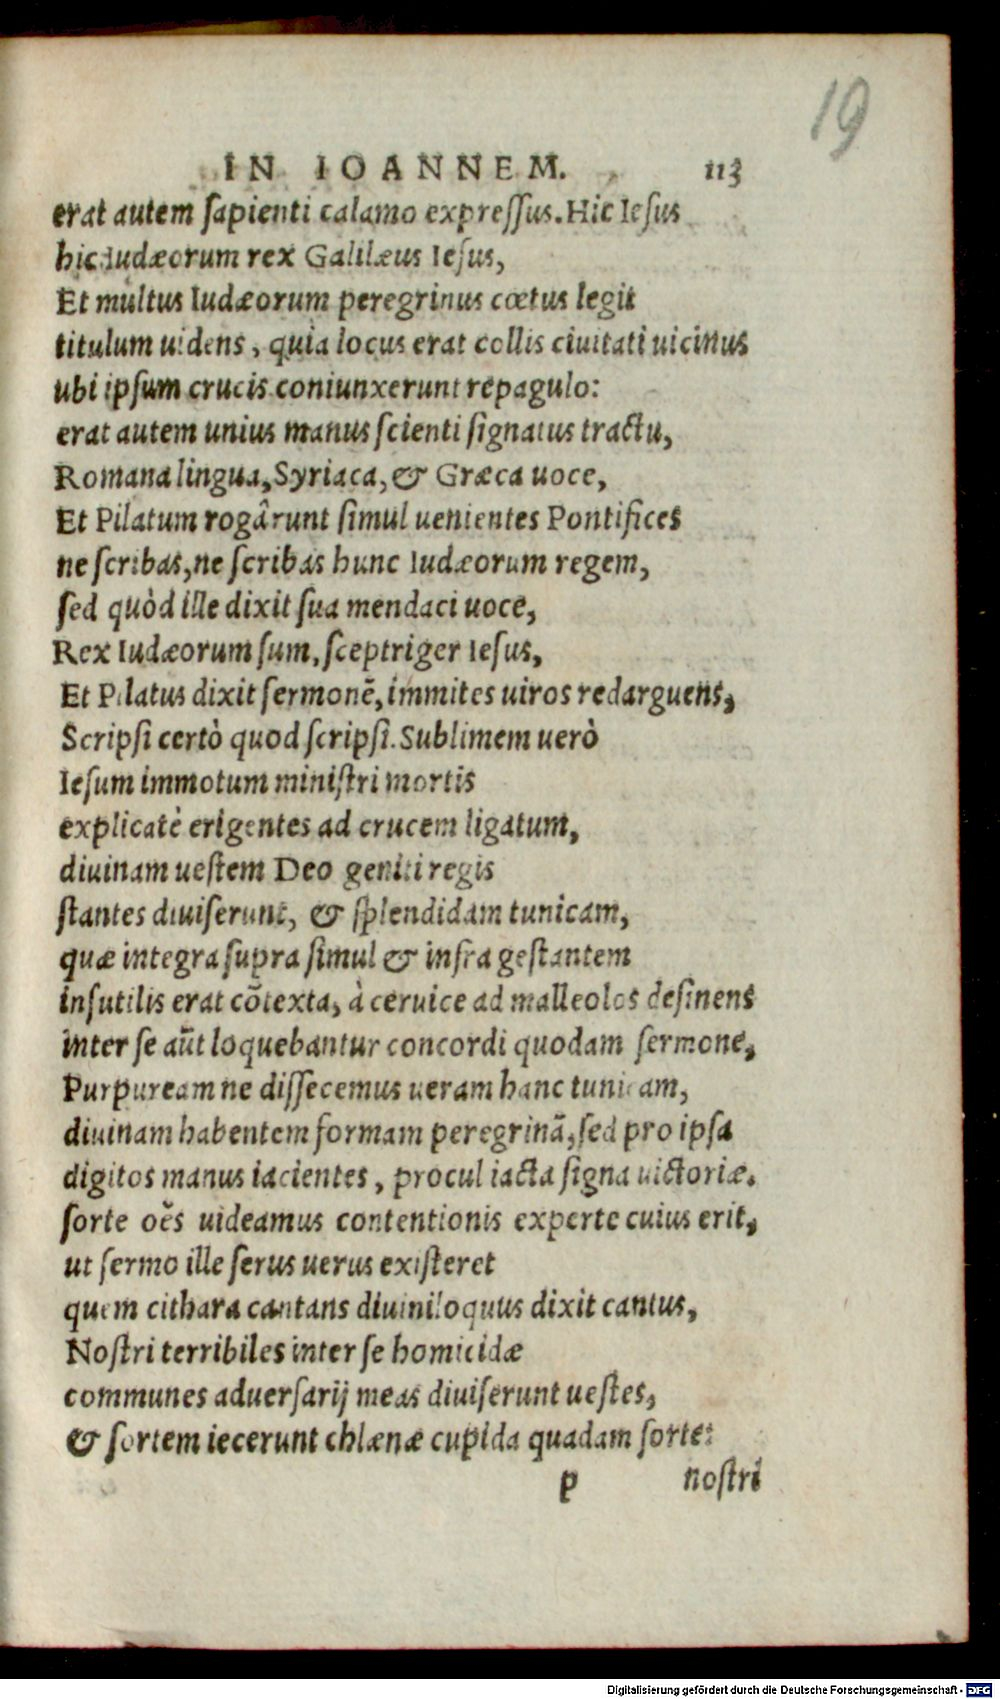 19
IN IOANNEM. 113
erat autem sapienti calamo expressus. Hic Iesus
hic Iudæorum rex Galilæus Iesus,
Et multus Iudæorum peregrinus cœtus legit
titulum uidens, quia locus erat collis ciuitati uicinus
ubi ipsum crucis coniunxerunt repagulo:
erat autem unius manus scienti signatus tractu,
Romana lingua, Syriaca, & Græca uoce,
Et Pilatum rogârunt simul uenientes Pontifices
ne scribas, ne scribas hunc Iudæorum regem,
sed quòd ille dixit sua mendaci uoce,
Rex Iudæorum sum, sceptriger Iesus,
Et Pilatus dixit sermonē, immites uiros redarguens,
Scripsi certò quod scripsi. Sublimem uerò
Iesum immotum ministri mortis
explicatè erigentes ad crucem ligatum,
diuinam uestem Deo geniti regis
stantes diuiserunt, & splendidam tunicam,
quæ integra supra simul & infra gestantem
insutilis erat cōtexta, à ceruice ad malleolos desinens
inter se aūt loquebantur concordi quodam sermone,
Purpuream ne dissecemus ueram hanc tunicam,
diuinam habentem formam peregrinā, sed pro ipsa
digitos manus iacientes, procul iacta signa uictoriæ.
sorte oēs uideamus contentionis experte cuius erit,
ut sermo ille serus uerus existeret
quem cithara cantans diuiniloquus dixit cantus,
Nostri terribiles inter se homicidæ
communes aduersarij meas diuiserunt uestes,
& sortem iecerunt chlænæ cupida quadam sorte:
p nostri
Digitalisierung gefördert durch die Deutsche Forschungsgemeinschaft - DFG